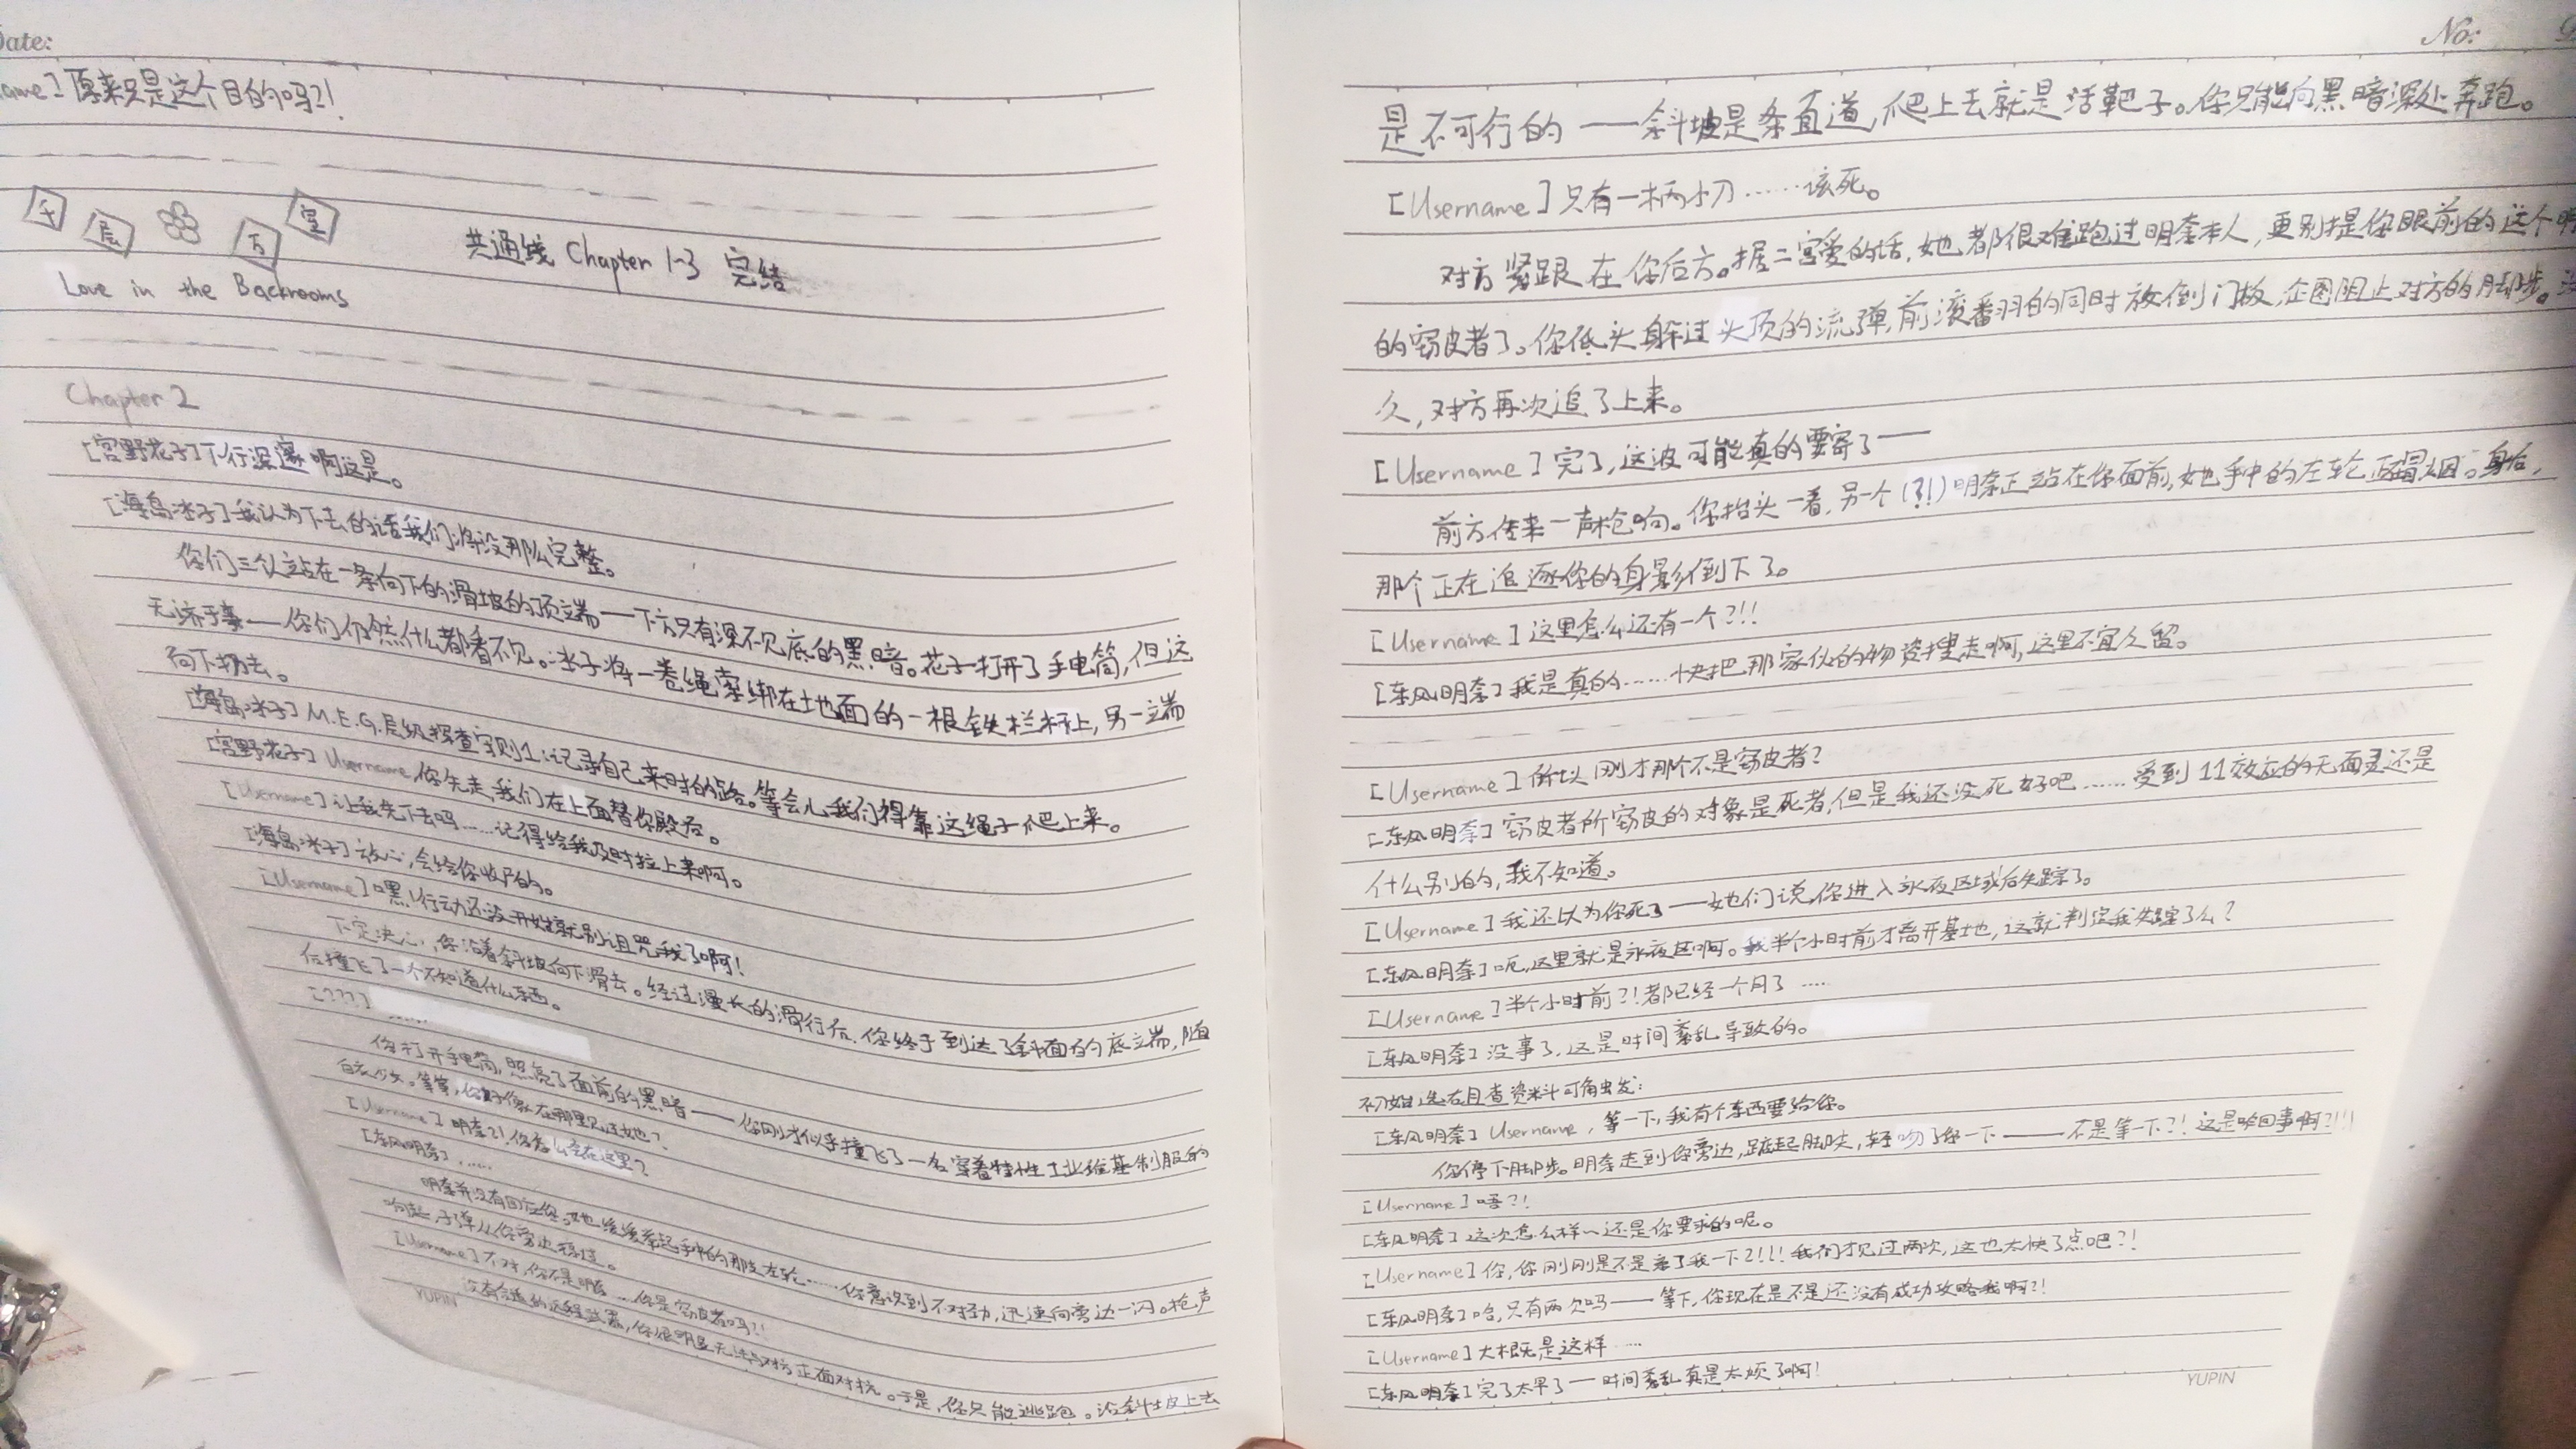 Date:
ame]原来只是这个目的吗?!
千层 万室
共通线 Chapter 1-3 完结
Love in the Backrooms
Chapter 2
[宫野花子]下行深邃啊这是。
[海岛冰子]我认为下去的话我们将没那么完整。
你们三人站在一条向下的滑坡的顶端——下方只有深不见底的黑暗。花子打开了手电筒,但这
无济于事——你们仍然什么都看不见。冰子将一卷绳索绑在地面的一根铁栏杆上,另一端
向下扔去。
[海岛冰子]M.E.G.层级探查守则1:记录自己来时的路。等会儿我们得靠这绳子爬上来。
[宫野花子]Username,你先走,我们在上面替你殿后。
[Username]让我先下去吗……记得给我及时拉上来啊。
[海岛冰子]放心,会给你收尸的。
[Username]嘿!行动还没开始就别诅咒我了啊!
下定决心,你沿着斜坡向下滑去。经过漫长的滑行后,你终于到达了斜面的底端,随
后撞飞了一个不知道什么东西。
[???]……
你打开手电筒,照亮了面前的黑暗——你刚才似乎撞飞了一名穿着特性工业维基制服的
白衣少女。等等,你好像在哪里见过她?
[Username]明奈?!你怎么会在这里?
[东风明奈]……
明奈并没有回应您,她缓缓举起手中的那支左轮……你意识到不对劲,迅速向旁边一闪。枪声
响起,子弹从你旁边掠过。
[Username]不对,你不是明奈……你是窃皮者吗?!
没有合适的远程武器,你很明显无法与对方正面对抗。于是,你只能逃跑。沿斜坡上去
YUPIN
No:
是不可行的——斜坡是条直道,爬上去就是活靶子。你只能向黑暗深处奔跑。
[Username]只有一柄小刀……该死。
对方紧跟在你后方。据二宫爱的话,她都很难跑过明奈本人,更别提你眼前的这个明
的窃皮者了。你低头躲过头顶的流弹,前滚翻的同时放倒门板,企图阻止对方的脚步。没
久,对方再次追了上来。
[Username]完了,这波可能真的要寄了——
前方传来一声枪响。你抬头一看,另一个(?!)明奈正站在你面前,她手中的左轮正冒烟。身后,
那个正在追逐你的身影倒下了。
[Username]这里怎么还有一个?!!
[东风明奈]我是真的……快把那家伙的物资搜走啊,这里不宜久留。
[Username]所以刚才那个不是窃皮者?
[东风明奈]窃皮者所窃皮的对象是死者,但是我还没死好吧……受到11效应的无面灵还是
什么别的,我不知道。
[Username]我还以为你死了——她们说,你进入永夜区域后失踪了。
[东风明奈]呃,这里就是永夜区啊。我半个小时前才离开基地,这就判定我失踪了么?
[Username]半个小时前?!都已经一个月了……
[东风明奈]没事了,这是时间紊乱导致的。
初始选右且查资料可触发:
[东风明奈]Username,等一下,我有个东西要给你。
你停下脚步。明奈走到你旁边,踮起脚尖,轻吻了你一下——不是等一下?!这是咋回事啊?!!!
[Username]唔?!
[东风明奈]这次怎么样~还是你要求的呢。
[Username]你,你刚刚是不是亲了我一下?!!!我们才见过两次,这也太快了点吧?!
[东风明奈]哈,只有两次吗——等下,你现在是不是还没有成功攻略我啊?!
[Username]大概是这样……
[东风明奈]完了太早了——时间紊乱真是太烦了啊!
YUPIN